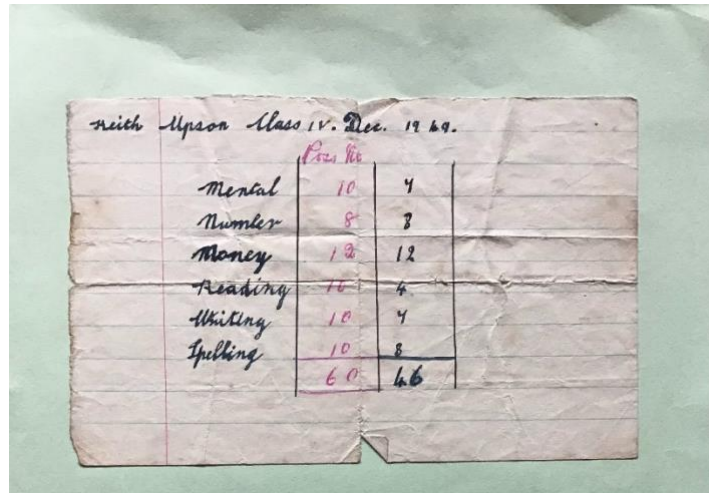 Keith Upson Class IV. Dec. 1949.
Poss
Mental 10 7
Number 8 8
Money 12 12
Reading 10 4
Writing 10 7
Spelling 10 8
60 46